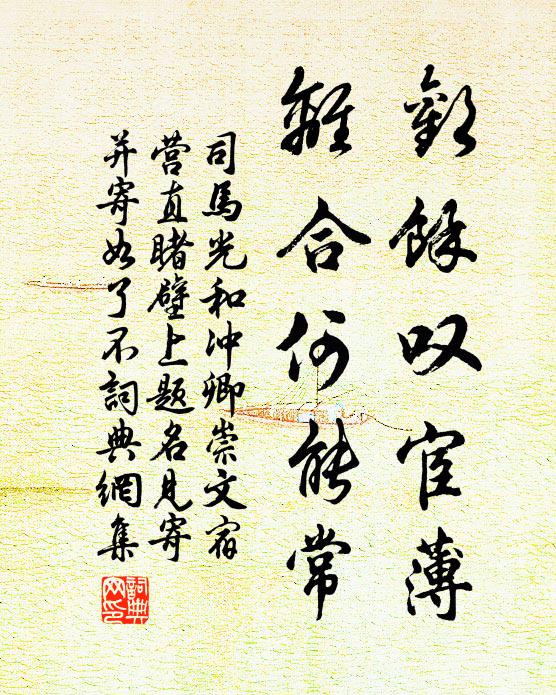 歡餘叹宦薄
離合何能常
司馬光和冲卿崇文宿
营直睹壁上題名見寄
并寄如了不詞典網集
詞典网印